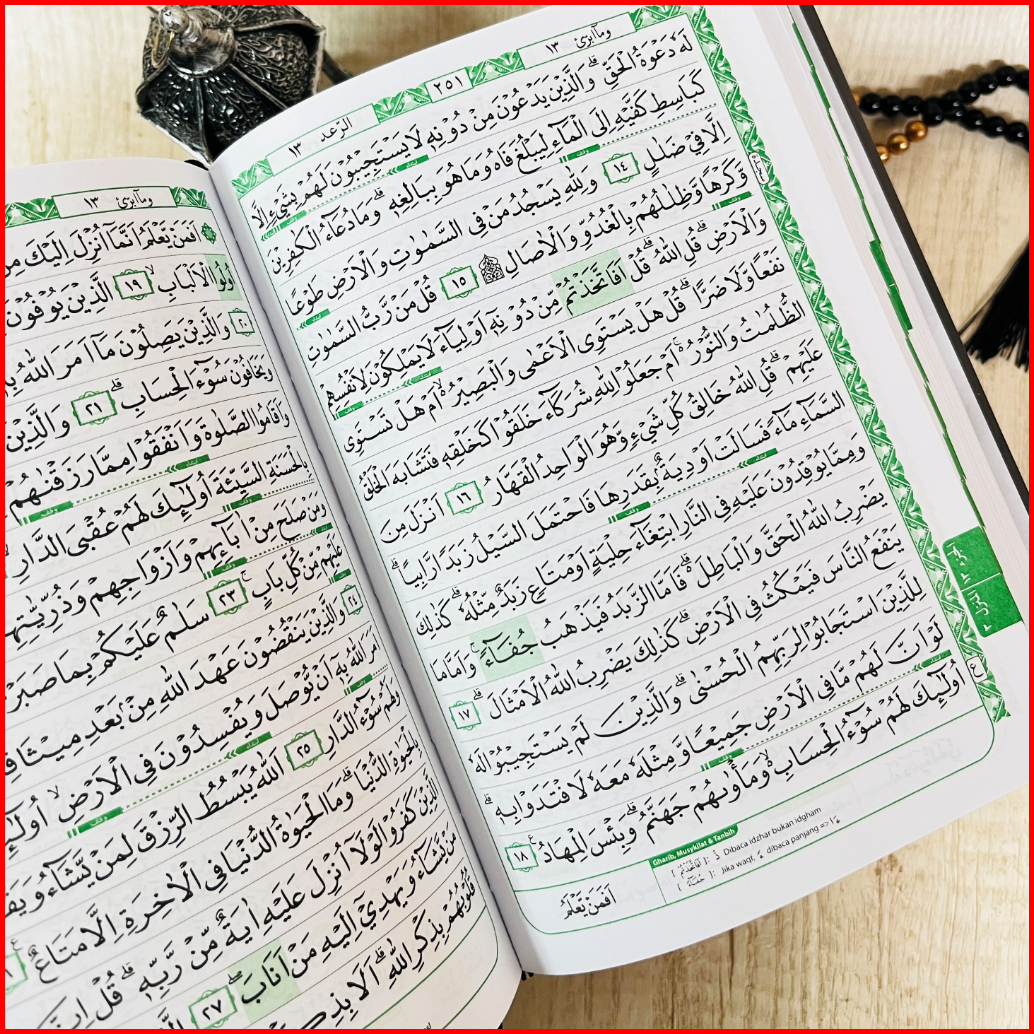 وماابرئ ١٣
٢٥١
الرّعد ١٣
لَهٗ دَعْوَةُ الْحَقِّۗ وَالَّذِيْنَ يَدْعُوْنَ مِنْ دُوْنِهٖ لَا يَسْتَجِيْبُوْنَ لَهُمْ بِشَيْءٍ اِلَّا
كَبَاسِطِ كَفَّيْهِ اِلَى الْمَاۤءِ لِيَبْلُغَ فَاهُ وَمَا هُوَ بِبَالِغِهٖۗ وَمَا دُعَاۤءُ الْكٰفِرِيْنَ
اِلَّا فِيْ ضَلٰلٍ ١٤ وَلِلّٰهِ يَسْجُدُ مَنْ فِى السَّمٰوٰتِ وَالْاَرْضِ طَوْعًا
وَّكَرْهًا وَّظِلٰلُهُمْ بِالْغُدُوِّ وَالْاٰصَالِ ۩ ١٥ قُلْ مَنْ رَّبُّ السَّمٰوٰتِ
وَالْاَرْضِۗ قُلِ اللّٰهُۗ قُلْ اَفَاتَّخَذْتُمْ مِّنْ دُوْنِهٖٓ اَوْلِيَاۤءَ لَا يَمْلِكُوْنَ لِاَنْفُسِهِمْ
نَفْعًا وَّلَا ضَرًّاۗ قُلْ هَلْ يَسْتَوِى الْاَعْمٰى وَالْبَصِيْرُ ەۙ اَمْ هَلْ تَسْتَوِى
الظُّلُمٰتُ وَالنُّوْرُ ەۚ اَمْ جَعَلُوْا لِلّٰهِ شُرَكَاۤءَ خَلَقُوْا كَخَلْقِهٖ فَتَشَابَهَ الْخَلْقُ
عَلَيْهِمْۗ قُلِ اللّٰهُ خَالِقُ كُلِّ شَيْءٍ وَّهُوَ الْوَاحِدُ الْقَهَّارُ ١٦ اَنْزَلَ مِنَ
السَّمَاۤءِ مَاۤءً فَسَالَتْ اَوْدِيَةٌۢ بِقَدَرِهَا فَاحْتَمَلَ السَّيْلُ زَبَدًا رَّابِيًاۗ
وَمِمَّا يُوْقِدُوْنَ عَلَيْهِ فِى النَّارِ ابْتِغَاۤءَ حِلْيَةٍ اَوْ مَتَاعٍ زَبَدٌ مِّثْلُهٗۗ كَذٰلِكَ
يَضْرِبُ اللّٰهُ الْحَقَّ وَالْبَاطِلَ ەۗ فَاَمَّا الزَّبَدُ فَيَذْهَبُ جُفَاۤءًۚ وَاَمَّا مَا
يَنْفَعُ النَّاسَ فَيَمْكُثُ فِى الْاَرْضِۗ كَذٰلِكَ يَضْرِبُ اللّٰهُ الْاَمْثَالَۗ ١٧
لِلَّذِيْنَ اسْتَجَابُوْا لِرَبِّهِمُ الْحُسْنٰىۗ وَالَّذِيْنَ لَمْ يَسْتَجِيْبُوْا لَهٗ
لَوْ اَنَّ لَهُمْ مَّا فِى الْاَرْضِ جَمِيْعًا وَّمِثْلَهٗ مَعَهٗ لَافْتَدَوْا بِهٖۗ
اُولٰۤىِٕكَ لَهُمْ سُوْۤءُ الْحِسَابِ ەۙ وَمَأْوٰىهُمْ جَهَنَّمُۗ وَبِئْسَ الْمِهَادُ ١٨
اَفَمَنْ يَّعْلَمُ
Gharib, Musykilat & Tanbih
Dibaca idzhar bukan idgham
Jika waqf, ءً dibaca panjang => ءَا
وماابرئ ١٣
اَفَمَنْ يَّعْلَمُ اَنَّمَآ اُنْزِلَ اِلَيْكَ مِنْ
اُولُوا الْاَلْبَابِۙ ١٩ الَّذِيْنَ يُوْفُوْنَ
٢٠ وَالَّذِيْنَ يَصِلُوْنَ مَآ اَمَرَ اللّٰهُ
وَيَخَافُوْنَ سُوْۤءَ الْحِسَابِۗ ٢١ وَالَّذِيْنَ
وَاَقَامُوا الصَّلٰوةَ وَاَنْفَقُوْا مِمَّا رَزَقْنٰهُمْ
بِالْحَسَنَةِ السَّيِّئَةَ اُولٰۤىِٕكَ لَهُمْ عُقْبَى الدَّارِۙ
وَمَنْ صَلَحَ مِنْ اٰبَاۤىِٕهِمْ وَاَزْوَاجِهِمْ وَذُرِّيّٰتِهِمْ
عَلَيْهِمْ مِّنْ كُلِّ بَابٍۚ ٢٣ سَلٰمٌ عَلَيْكُمْ بِمَا صَبَرْ
٢٤ وَالَّذِيْنَ يَنْقُضُوْنَ عَهْدَ اللّٰهِ مِنْۢ بَعْدِ مِيْثَا
اَمَرَ اللّٰهُ بِهٖٓ اَنْ يُّوْصَلَ وَيُفْسِدُوْنَ فِى الْاَرْضِۙ اُولٰۤىِٕ
وَلَهُمْ سُوْۤءُ الدَّارِ ٢٥ اَللّٰهُ يَبْسُطُ الرِّزْقَ لِمَنْ يَّشَاۤءُ وَيَقْ
بِالْحَيٰوةِ الدُّنْيَاۗ وَمَا الْحَيٰوةُ الدُّنْيَا فِى الْاٰخِرَةِ اِلَّا مَتَاعٌ
الَّذِيْنَ كَفَرُوْا لَوْلَآ اُنْزِلَ عَلَيْهِ اٰيَةٌ مِّنْ رَّبِّهٖۗ قُلْ اِنَّ
مَنْ يَّشَاۤءُ وَيَهْدِيْٓ اِلَيْهِ مَنْ اَنَابَۖ ٢٧
قُلُوْبُهُمْ بِذِكْرِ اللّٰهِۗ اَلَا بِذِكْ